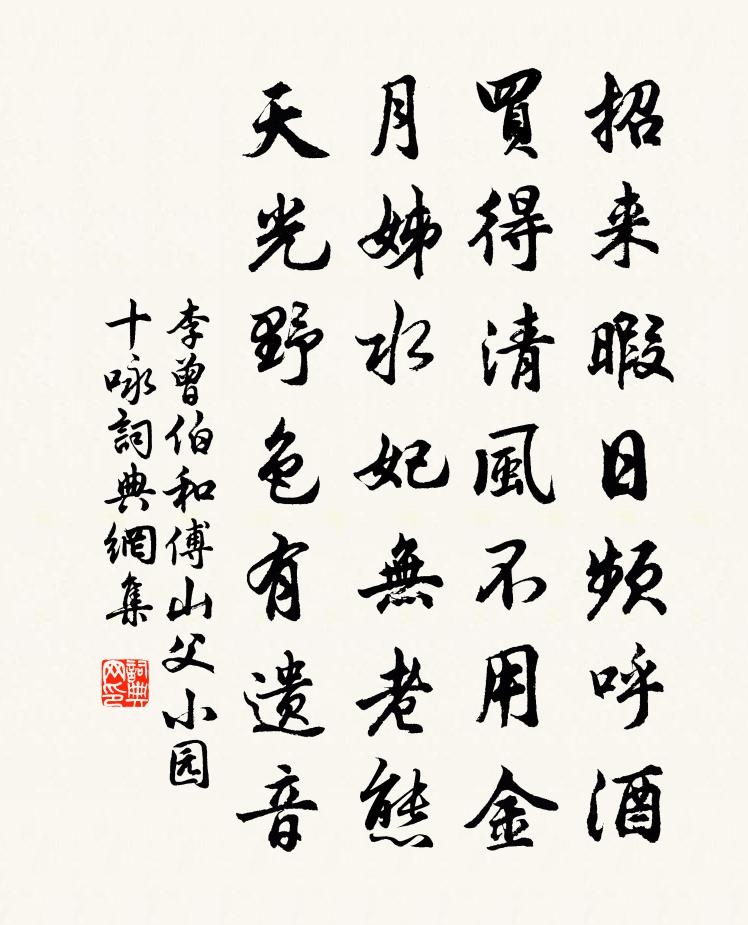 招来暇日頻呼酒
買得清風不用金
月姊水妃無老熊
天光野色有遺音
李曾伯和傅山父小园
十咏詞典網集
詞典网印